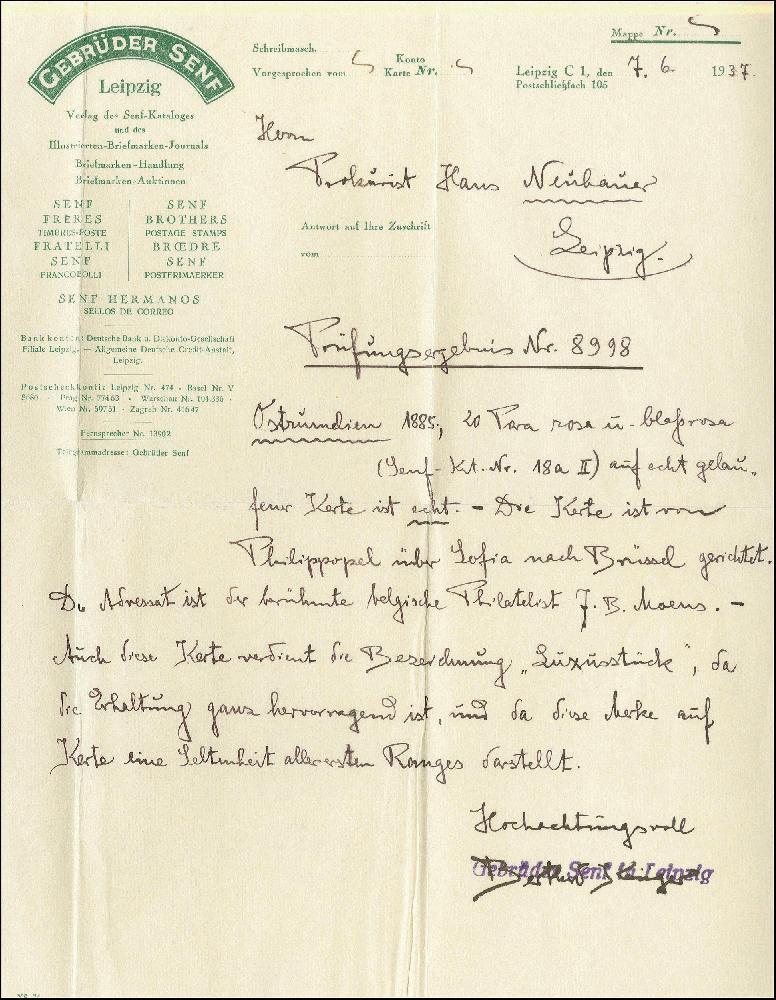 GEBRÜDER SENF
Leipzig
Verlag des Senf-Kataloges
und des
Illustrierten-Briefmarken-Journals
Briefmarken-Handlung
Briefmarken-Auktionen
SENF FRÈRES
TIMBRES-POSTE
FRATELLI SENF
FRANCOBOLLI
SENF BROTHERS
POSTAGE STAMPS
BRŒDRE SENF
POSTFRIMAERKER
SENF HERMANOS
SELLOS DE CORREO
Bankkonten: Deutsche Bank u. Diskonto-Gesellschaft
Filiale Leipzig. — Allgemeine Deutsche Credit-Anstalt,
Leipzig.
Postscheckkonti: Leipzig Nr. 474 - Basel Nr. V
Prag Nr. 77463 - Warschau Nr.
Wien Nr. 59751 - Zagreb Nr. 41647
Fernsprecher Nr. 13902
Telegrammadresse: Gebrüder Senf
Schreibmasch.
Vorgesprochen vom
Konto
Karte Nr.
Mappe Nr.
Leipzig C 1, den 7. 6. 1937.
Postschließfach 105
Herrn
Prokurist Hans Neubauer
Antwort auf Ihre Zuschrift
vom
Leipzig.
Prüfungsergebnis Nr. 8998
Ostrumelien 1885, 20 Para rosa u. blaßrosa
(Senf-Kat.-Nr. 18a II) auf echt gelau-
fener Karte ist echt. - Die Karte ist von
Philippopel über Sofia nach Brüssel gerichtet.
Der Adressat ist der berühmte belgische Philatelist J. B. Moens. -
Auch diese Karte verdient die Bezeichnung „Luxusstück", da
die Erhaltung ganz hervorragend ist, und da diese Marke auf
Karte eine Seltenheit allerersten Ranges darstellt.
Hochachtungsvoll
Gebrüder Senf in Leipzig